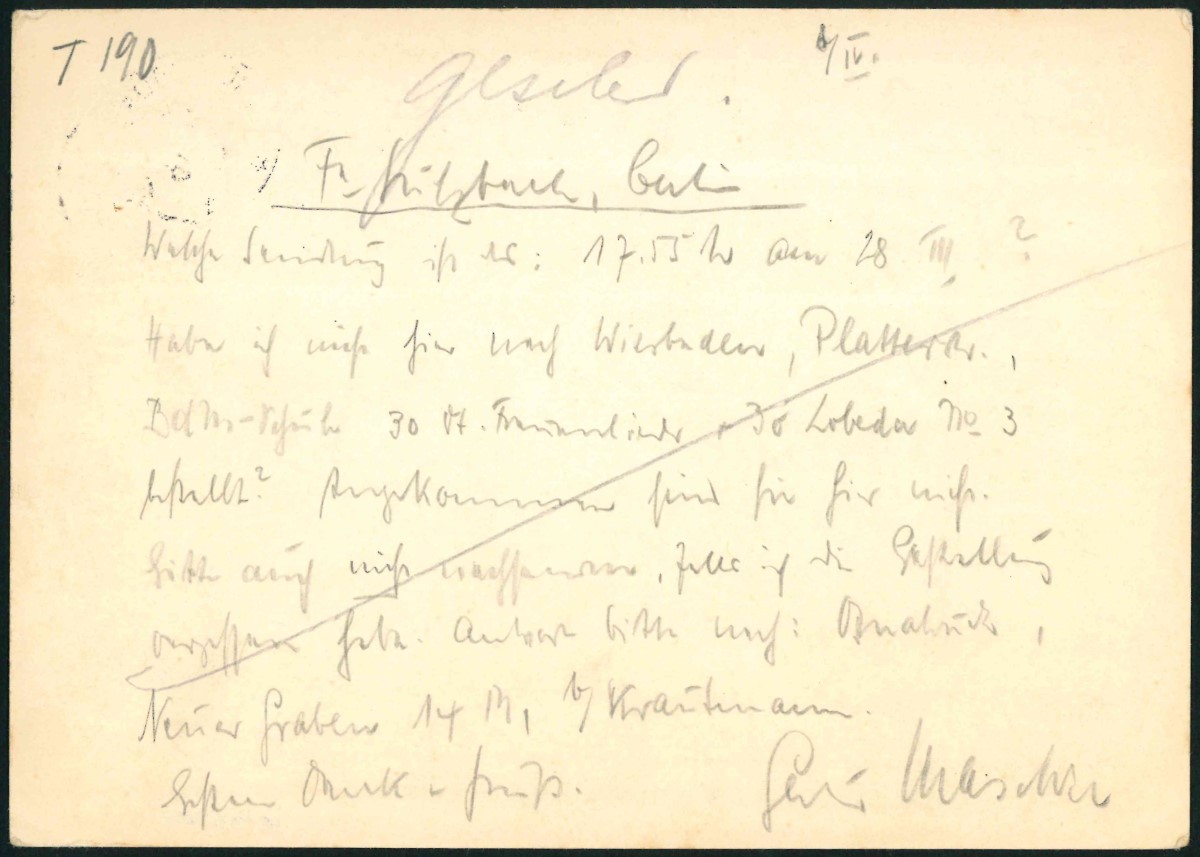 T 190
6/IV.
Fa Sulzbach, Berlin
Welche Sendung ist das: 17.55 M am 28 III. ?
Habe ich nicht hier nach Wiesbaden, Platterstr.,
Schule 30 St. Frauenlieder + 30 Lobeda No 3
bestellt? Angekommen sind sie hier nicht.
Bitte auch nicht nachsenden, falls ich die Bestellung
vergessen habe. Antwort bitte nach: Osnabrück,
Neuer Graben 14 b/ Krautmann.
Besten Dank u Gruß.